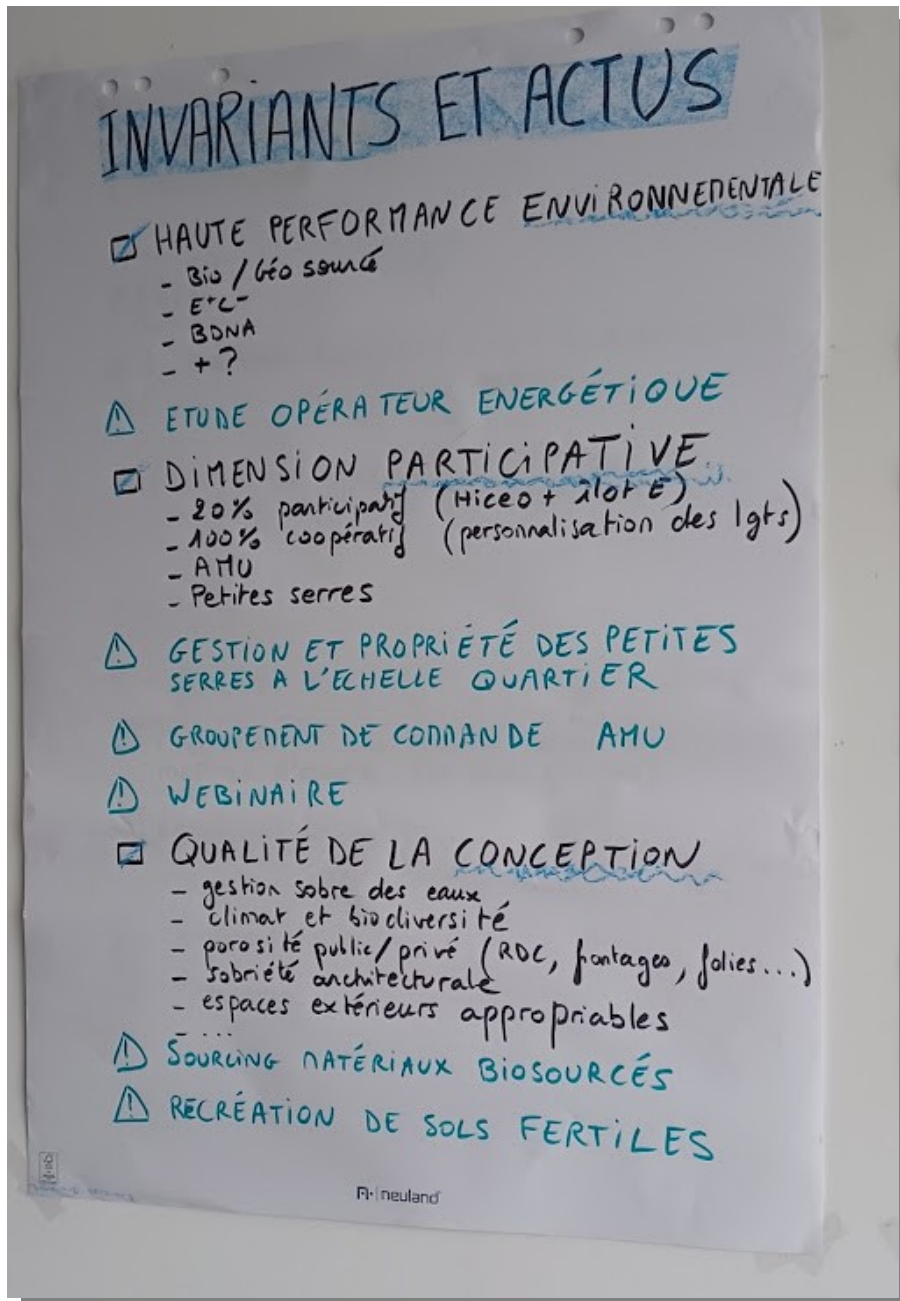 INVARIANTS ET ACTUS
HAUTE PERFORMANCE ENVIRONNEMENTALE
- Bio / Géo sourcé
- E+C-
- BDNA
- + ?
⚠ ETUDE OPÉRATEUR ENERGÉTIQUE
DIMENSION PARTICIPATIVE
- 20% participatif (Hiceo + îlot E)
- 100% coopératif (personnalisation des lgts)
- AMU
- Petites serres
⚠ GESTION ET PROPRIÉTÉ DES PETITES
SERRES A L'ECHELLE QUARTIER
⚠ GROUPEMENT DE COMMANDE AMU
⚠ WEBINAIRE
QUALITÉ DE LA CONCEPTION
- gestion sobre des eaux
- climat et biodiversité
- porosité public/privé (RDC, frontages, folies...)
- sobriété architecturale
- espaces extérieurs appropriables
- ...
⚠ SOURCING MATÉRIAUX BIOSOURCÉS
⚠ RECRÉATION DE SOLS FERTILES
neuland